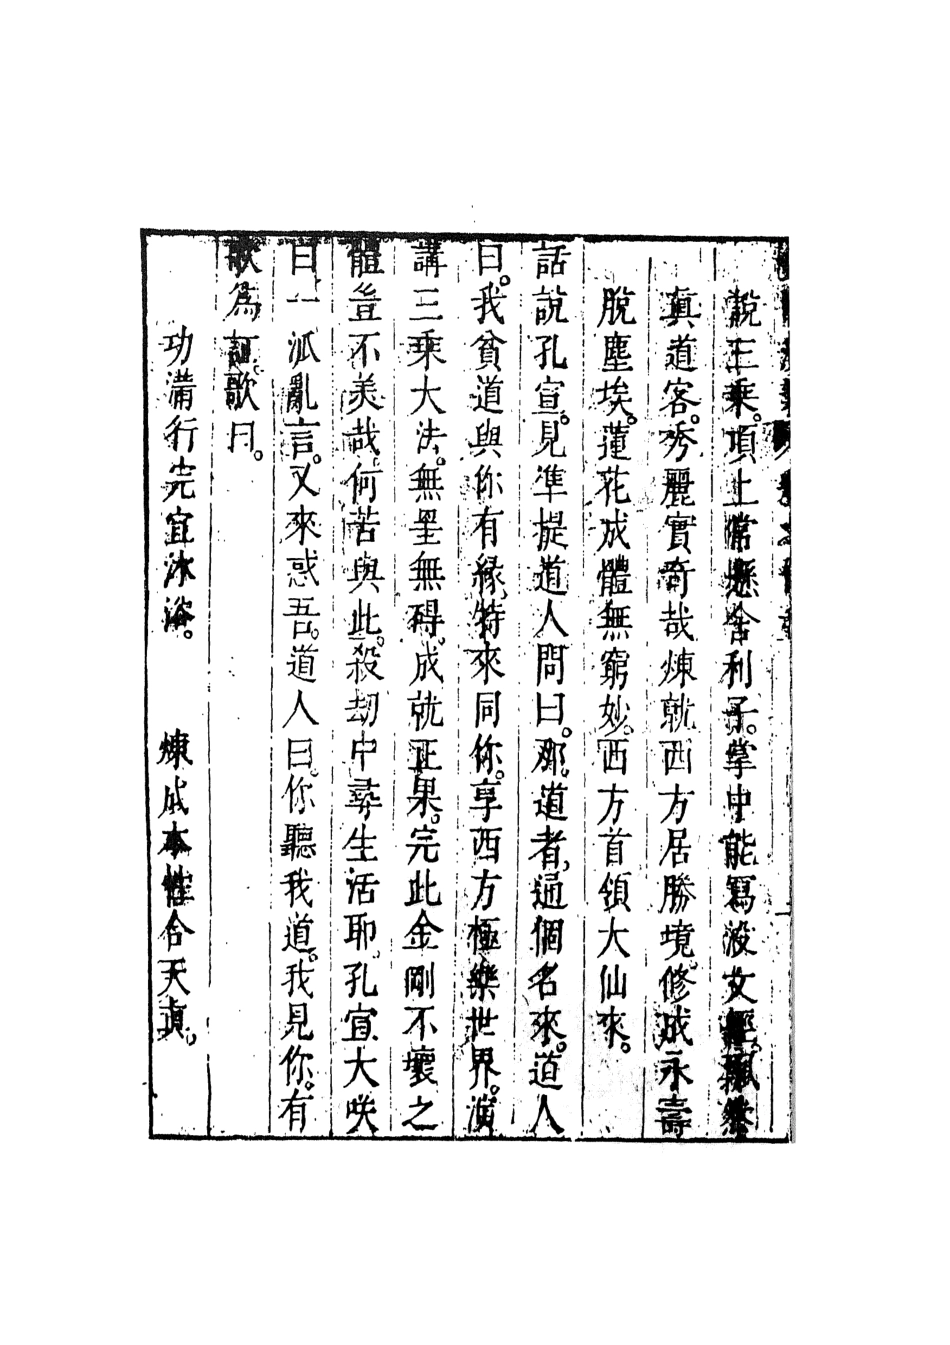 說三乘。項上常懸舍利子。掌中能寫沒文經。飄然
真道客。秀麗實奇哉煉就西方居勝境。修成永壽
脫塵埃。蓮花成體無窮妙。西方首領大仙來。
話說孔宣。見準提道人問曰。那道者。通個名來。道人
曰。我貧道與你有緣。特來同你。享西方極樂世界。演
講三乘大法。無罣無碍。成就正果。完此金剛不壞之
體豈不美哉何苦與此。殺劫中尋生活耶。孔宣大咲
曰。一派亂言。又來惑吾。道人曰。你聽我道。我見你。有
歌為証。歌曰。
功滿行完宜沐浴。 煉成本性合天真。